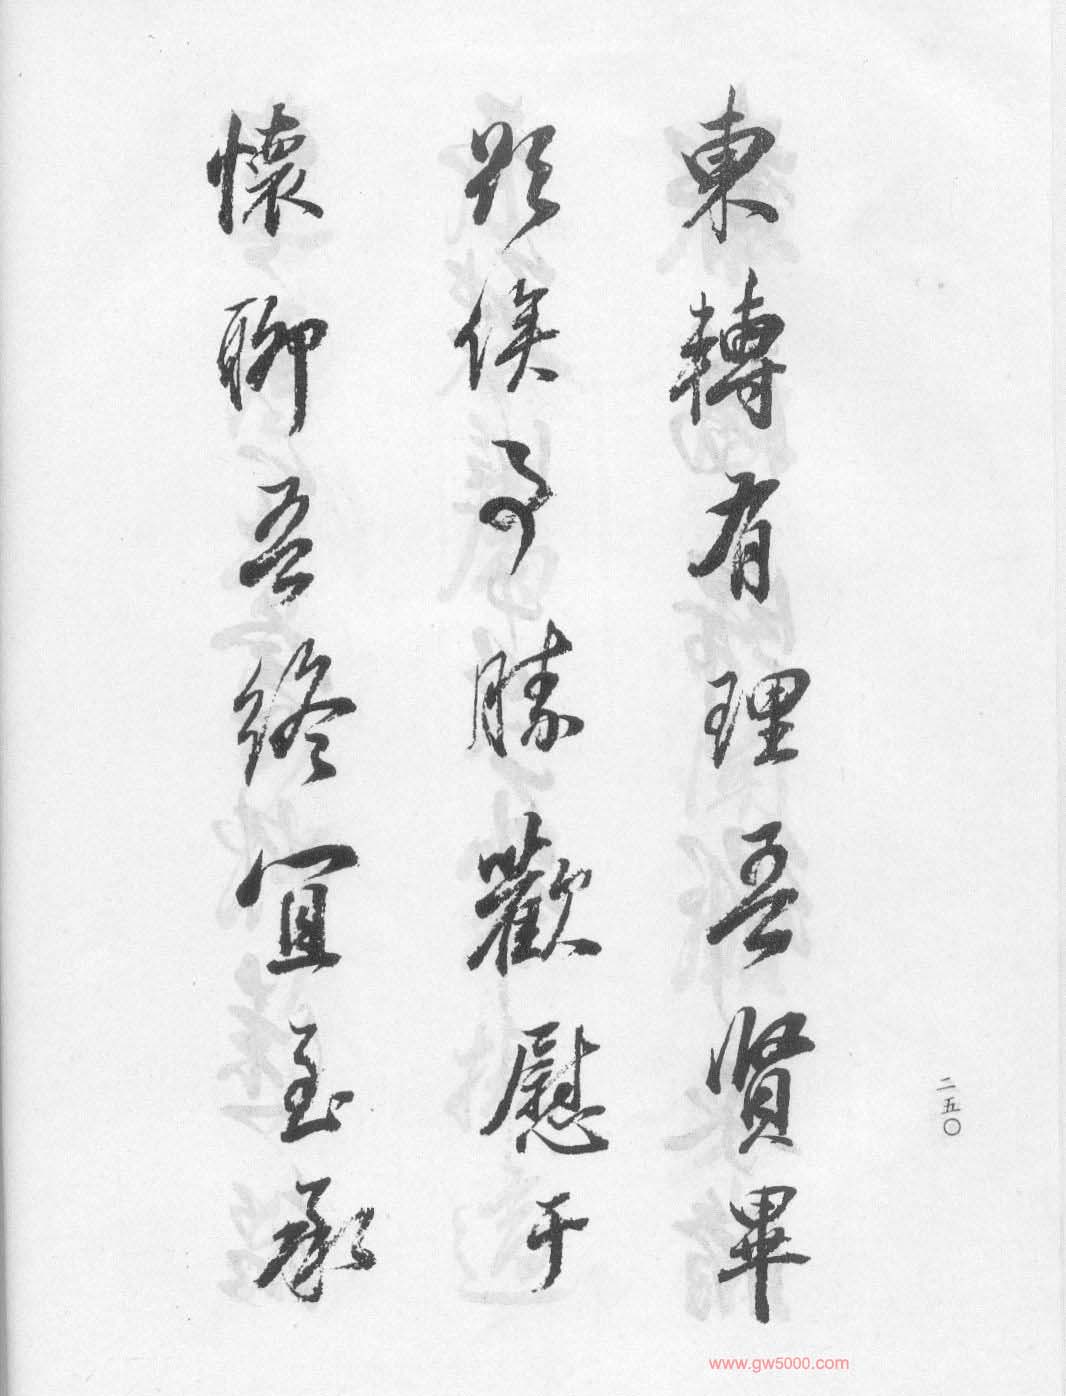 東轉有理吾賢畢
欵侯事勝歡慰于
懷聊吾終宜至承
二五〇
www.gw5000.com